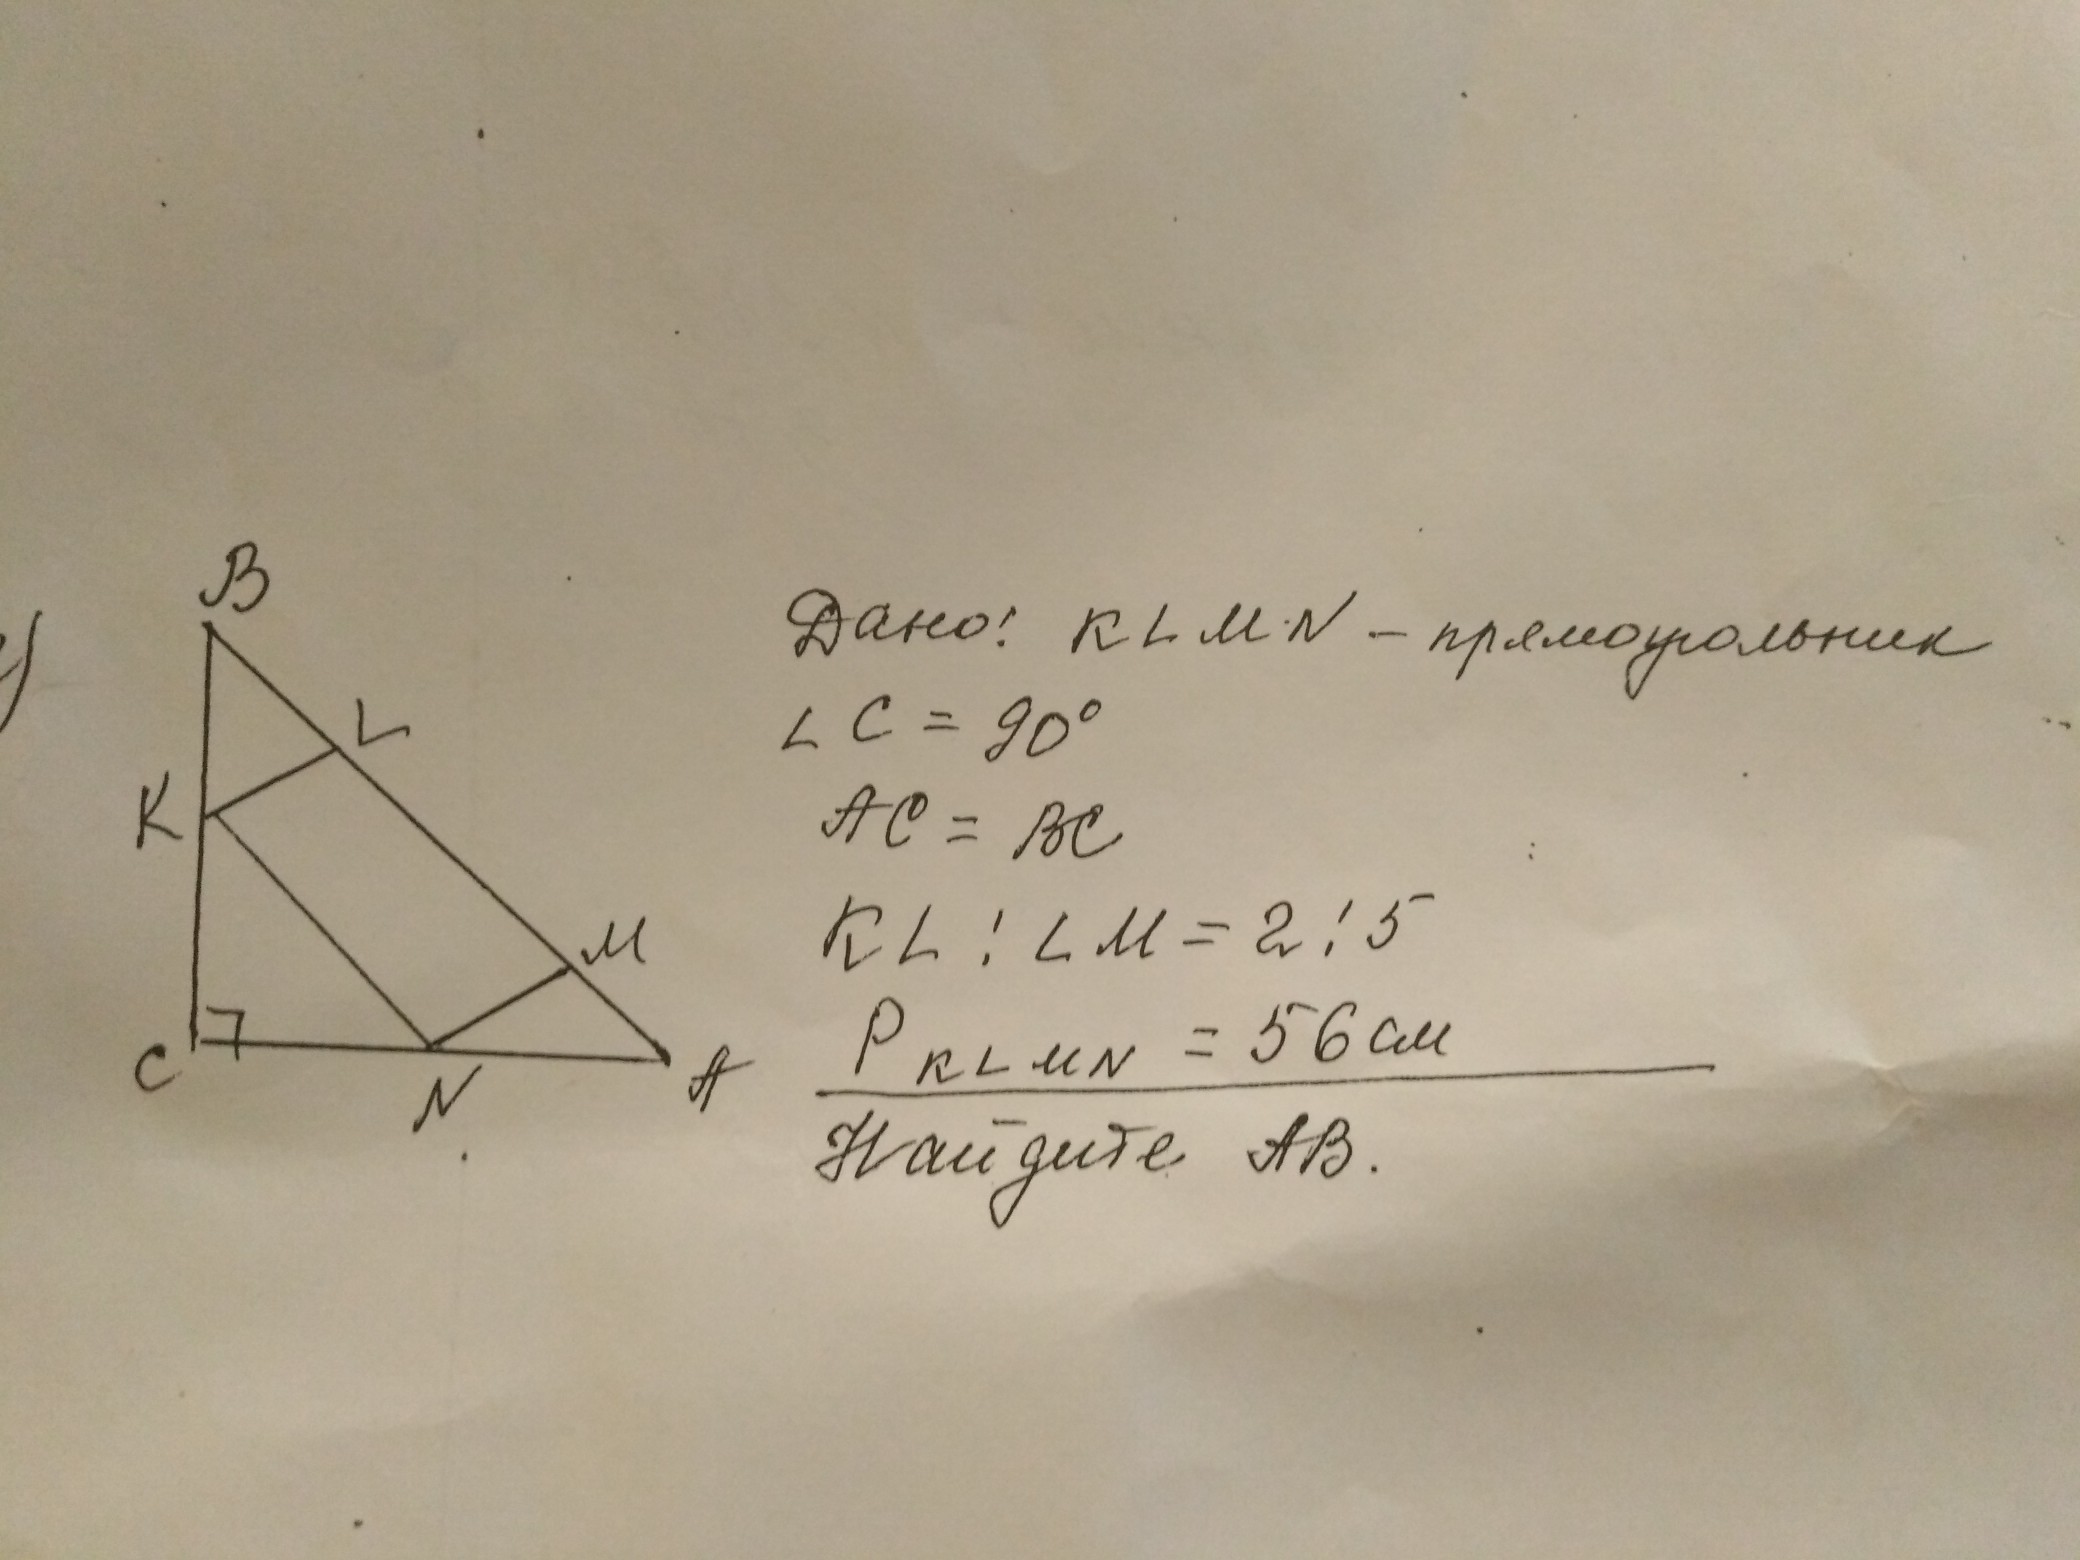 B
L
K
M
C
N
A
Дано: KLMN - прямоугольник
∠C = 90°
AC = BC
KL : LM = 2 : 5
P KLMN = 56 см
Найдите AB.